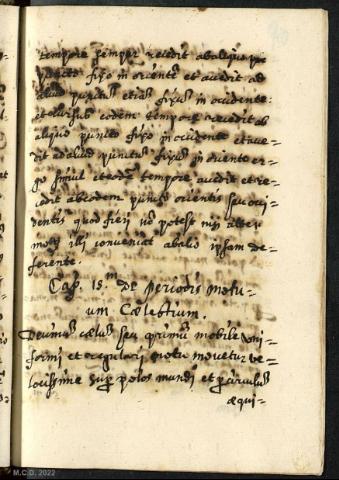 tempore semper recedit ab aliquo pu-
puncto fixo in oriente et accedit ad
aliud punctũ etiã fixũ in occidente:
et rursus eodem tempore recedit ab
aliquo puncto fixo in occidente et acce-
dit ad aliud punctum fixũ in oriente er-
go simul et eodẽ tempore accedit et re-
cedit ab eodem puncto orientis seu occi-
dentis quod fieri nõ potest nisi alter
motus illi conveniat ab alio ipsam de-
ferente.
Cap. 15.m de periodis motu-
um Cælestium.
Decimũ cælũ seu primũ mobile uni-
formi et regulari motu movetur ve-
locissime supr polos mundi et per circulũ
æqui-
M.C.D. 2022